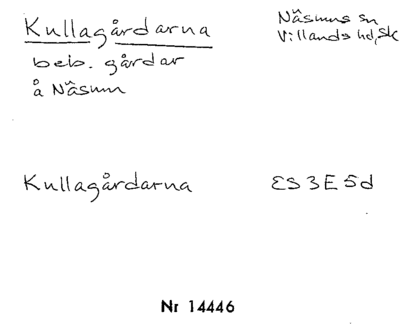 Kullagårdarna
Näsums sn
Villands hd, Sk
beb. gårdar
å Näsum
Kullagårdarna
ES 3E5d
Nr 14446